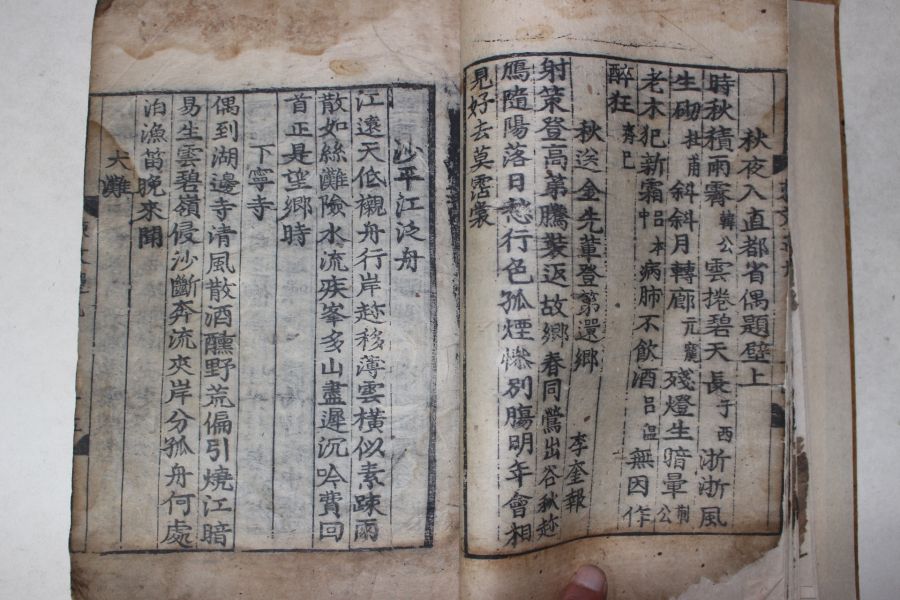 秋夜入直都省偶題壁上
時秋積雨霽韓公雲捲碧天長于西浙浙風
生砌杜甫斜斜月轉廊元寬殘燈生暗暈荊公
老木犯新霜呂本中病肺不飲酒呂溫無因作
醉狂
秋送金先輩登第還鄕 李奎報
射策登高第騰裝返故鄕春同鶯出谷秋趂
鴈隨陽落日愁行色孤煙慘別膓明年會相
見好去莫霑裳
沙平江泛舟
江遠天低襯舟行岸趂移薄雲橫似素踈雨
散如絲灘險水流疾峯多山盡遲沉吟費回
首正是望鄕時
下寧寺
偶到湖邊寺清風散酒醺野荒偏引燒江暗
易生雲碧嶺侵沙斷奔流夾岸分孤舟何處
泊漁笛晚來聞
犬灘